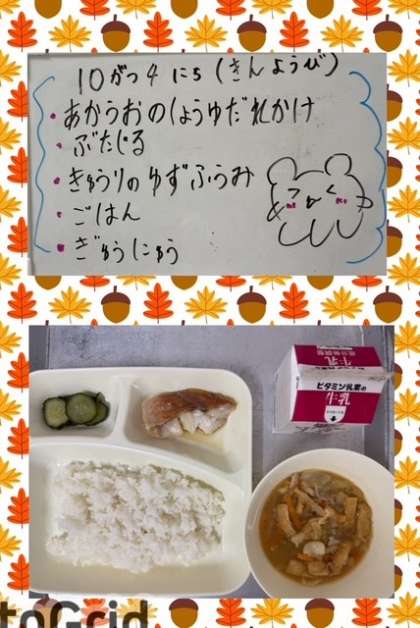 10がつ4にち(きんようび)
・あかうおのしょうゆだれかけ
・ぶたじる
・きゅうりのゆずふうみ
・ごはん
・ぎゅうにゅう
牛乳
ビタミン乳業の
牛乳
toGrid